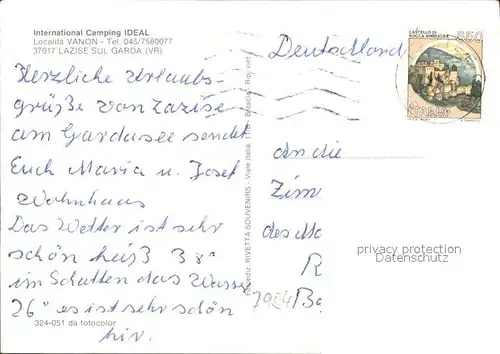 International Camping IDEAL
Località VANON - Tel 045/7580077
37017 LAZISE SUL GARDA (VR)
Herzliche Urlaubs-
grüße von Lazise
am Gardasee sendet
Euch Maria u. Josef
Wohnhaas
Das Wetter ist sehr
schön heiß 38°
im Schatten das Wasser
26° es ist sehr schön
hir.
324-051 da fotocolor
RIVETTA SOUVENIRS - Viale Italia, - Brescia - Rip. viet.
Deutschland
CASTELLO DI
ROCCA SINIBALDA
550
ITALIA
an die
Zim
des Ma
R
Ba
privacy protection
Datenschutz